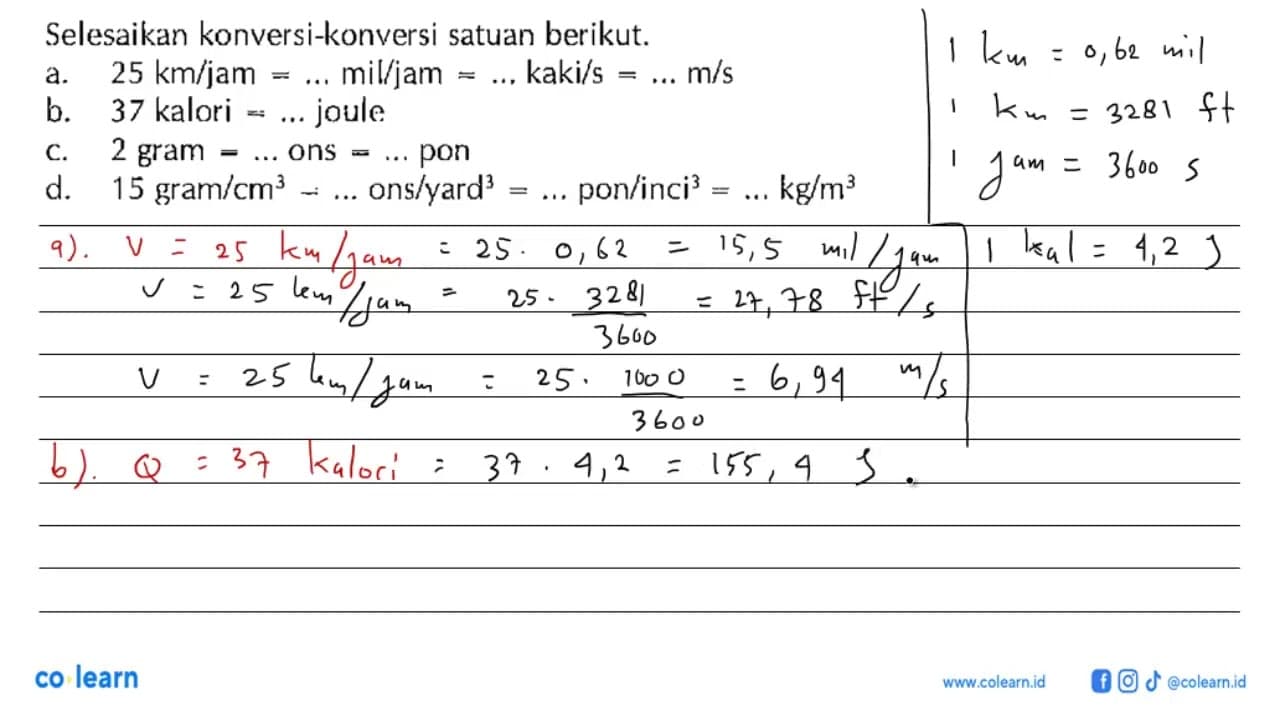 Selesaikan konversi-konversi satuan berikut.
a. 25 km/jam = ... mil/jam = ... kaki/s = ... m/s
b. 37 kalori = ... joule
c. 2 gram = ... ons = ... pon
d. 15 gram/cm³ = ... ons/yard³ = ... pon/inci³ = ... kg/m³
1 km = 0,62 mil
1 km = 3281 ft
1 jam = 3600 s
1 kal = 4,2 J
a). V = 25 km/jam = 25 . 0,62 = 15,5 mil/jam
V = 25 km/jam = 25 . 3281/3600 = 27,78 ft/s
V = 25 km/jam = 25 . 1000/3600 = 6,94 m/s
b). Q = 37 kalori = 37 . 4,2 = 155,4 J .
co learn
www.colearn.id
@colearn.id